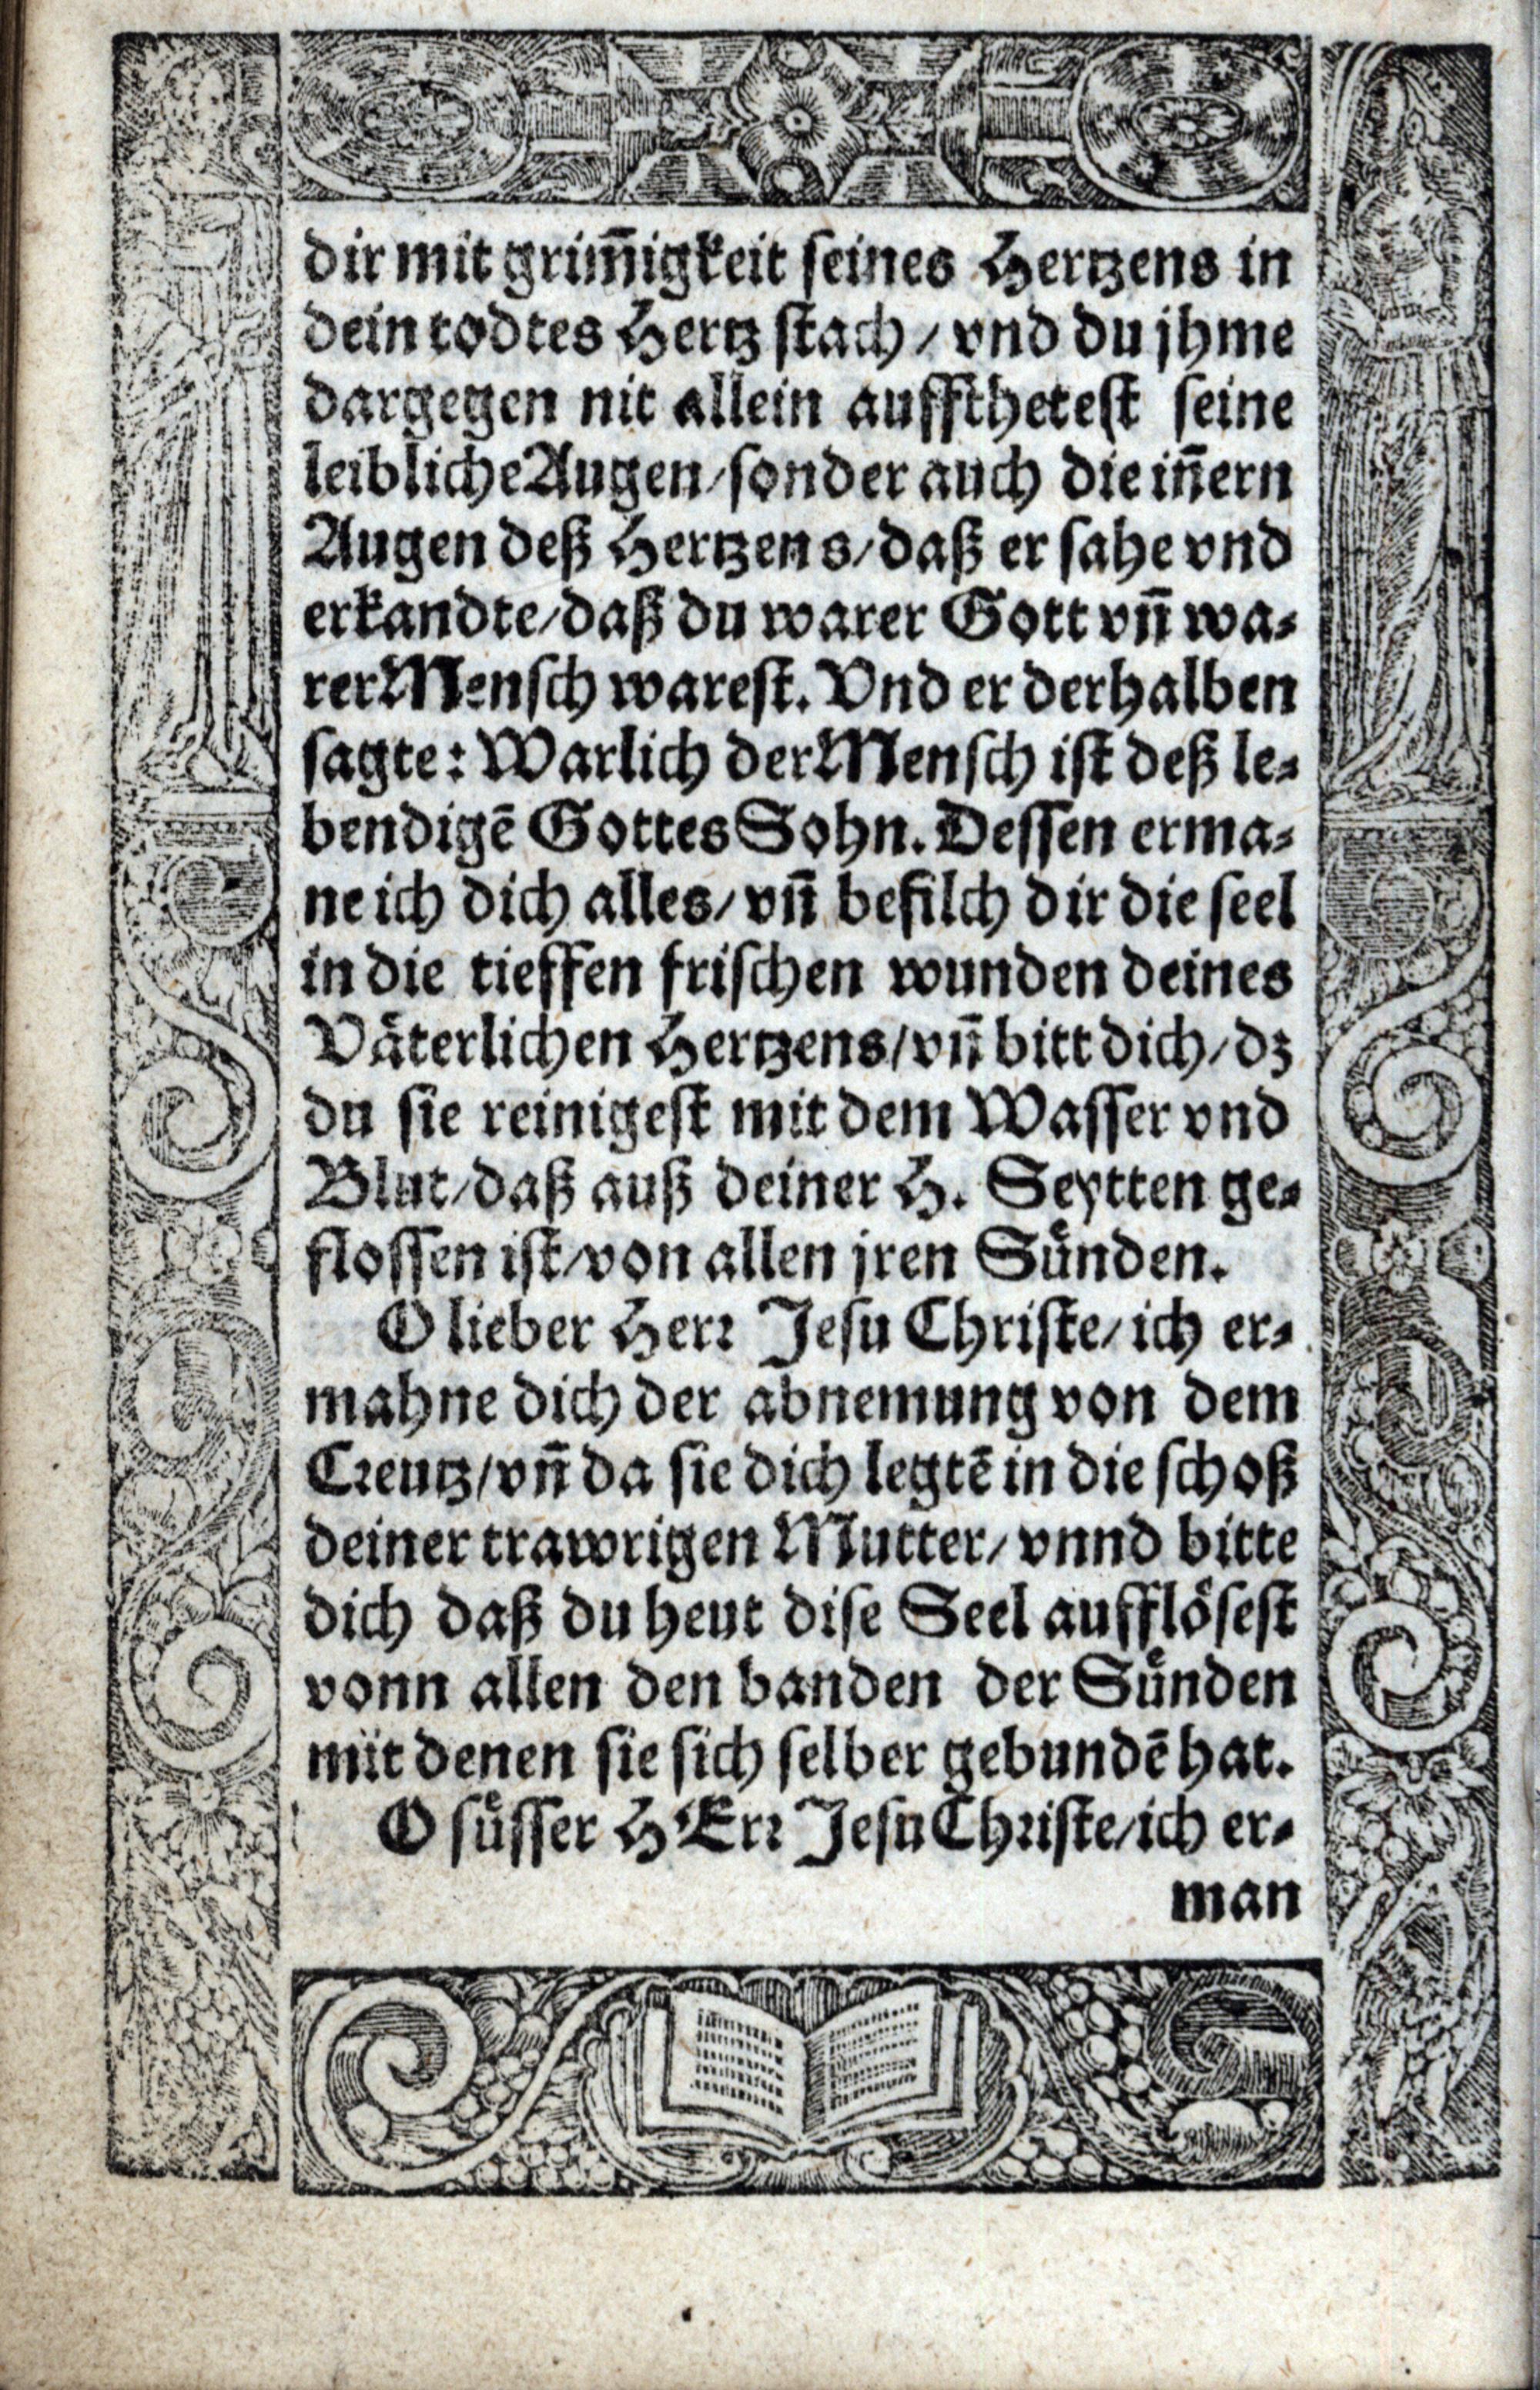 dir mit grim̃igkeit seines Hertzens in
dein todtes Hertz stach / vnd du jhme
dargegen nit allein auffthetest seine
leibliche Augen / sonder auch die iñern
Augen deß Hertzens / daß er sahe vnd
erkandte / daß du warer Gott vñ wa-
rer Mensch warest. Vnd er derhalben
sagte: Warlich der Mensch ist deß le-
bendigẽ Gottes Sohn. Dessen erma-
ne ich dich alles / vñ befilch dir die seel
in die tieffen frischen wunden deines
Väterlichen Hertzens / vñ bitt dich / dz
du sie reinigest mit dem Wasser vnd
Blut / daß auß deiner H. Seytten ge-
flossen ist / von allen jren Sünden.
O lieber Herr Jesu Christe / ich er-
mahne dich der abnemung von dem
Creutz / vñ da sie dich legtẽ in die schoß
deiner trawrigen Mutter / vnnd bitte
dich daß du heut dise Seel aufflösest
vonn allen den banden der Sünden
mit denen sie sich selber gebundẽ hat.
O süsser HErr Jesu Christe / ich er-
man